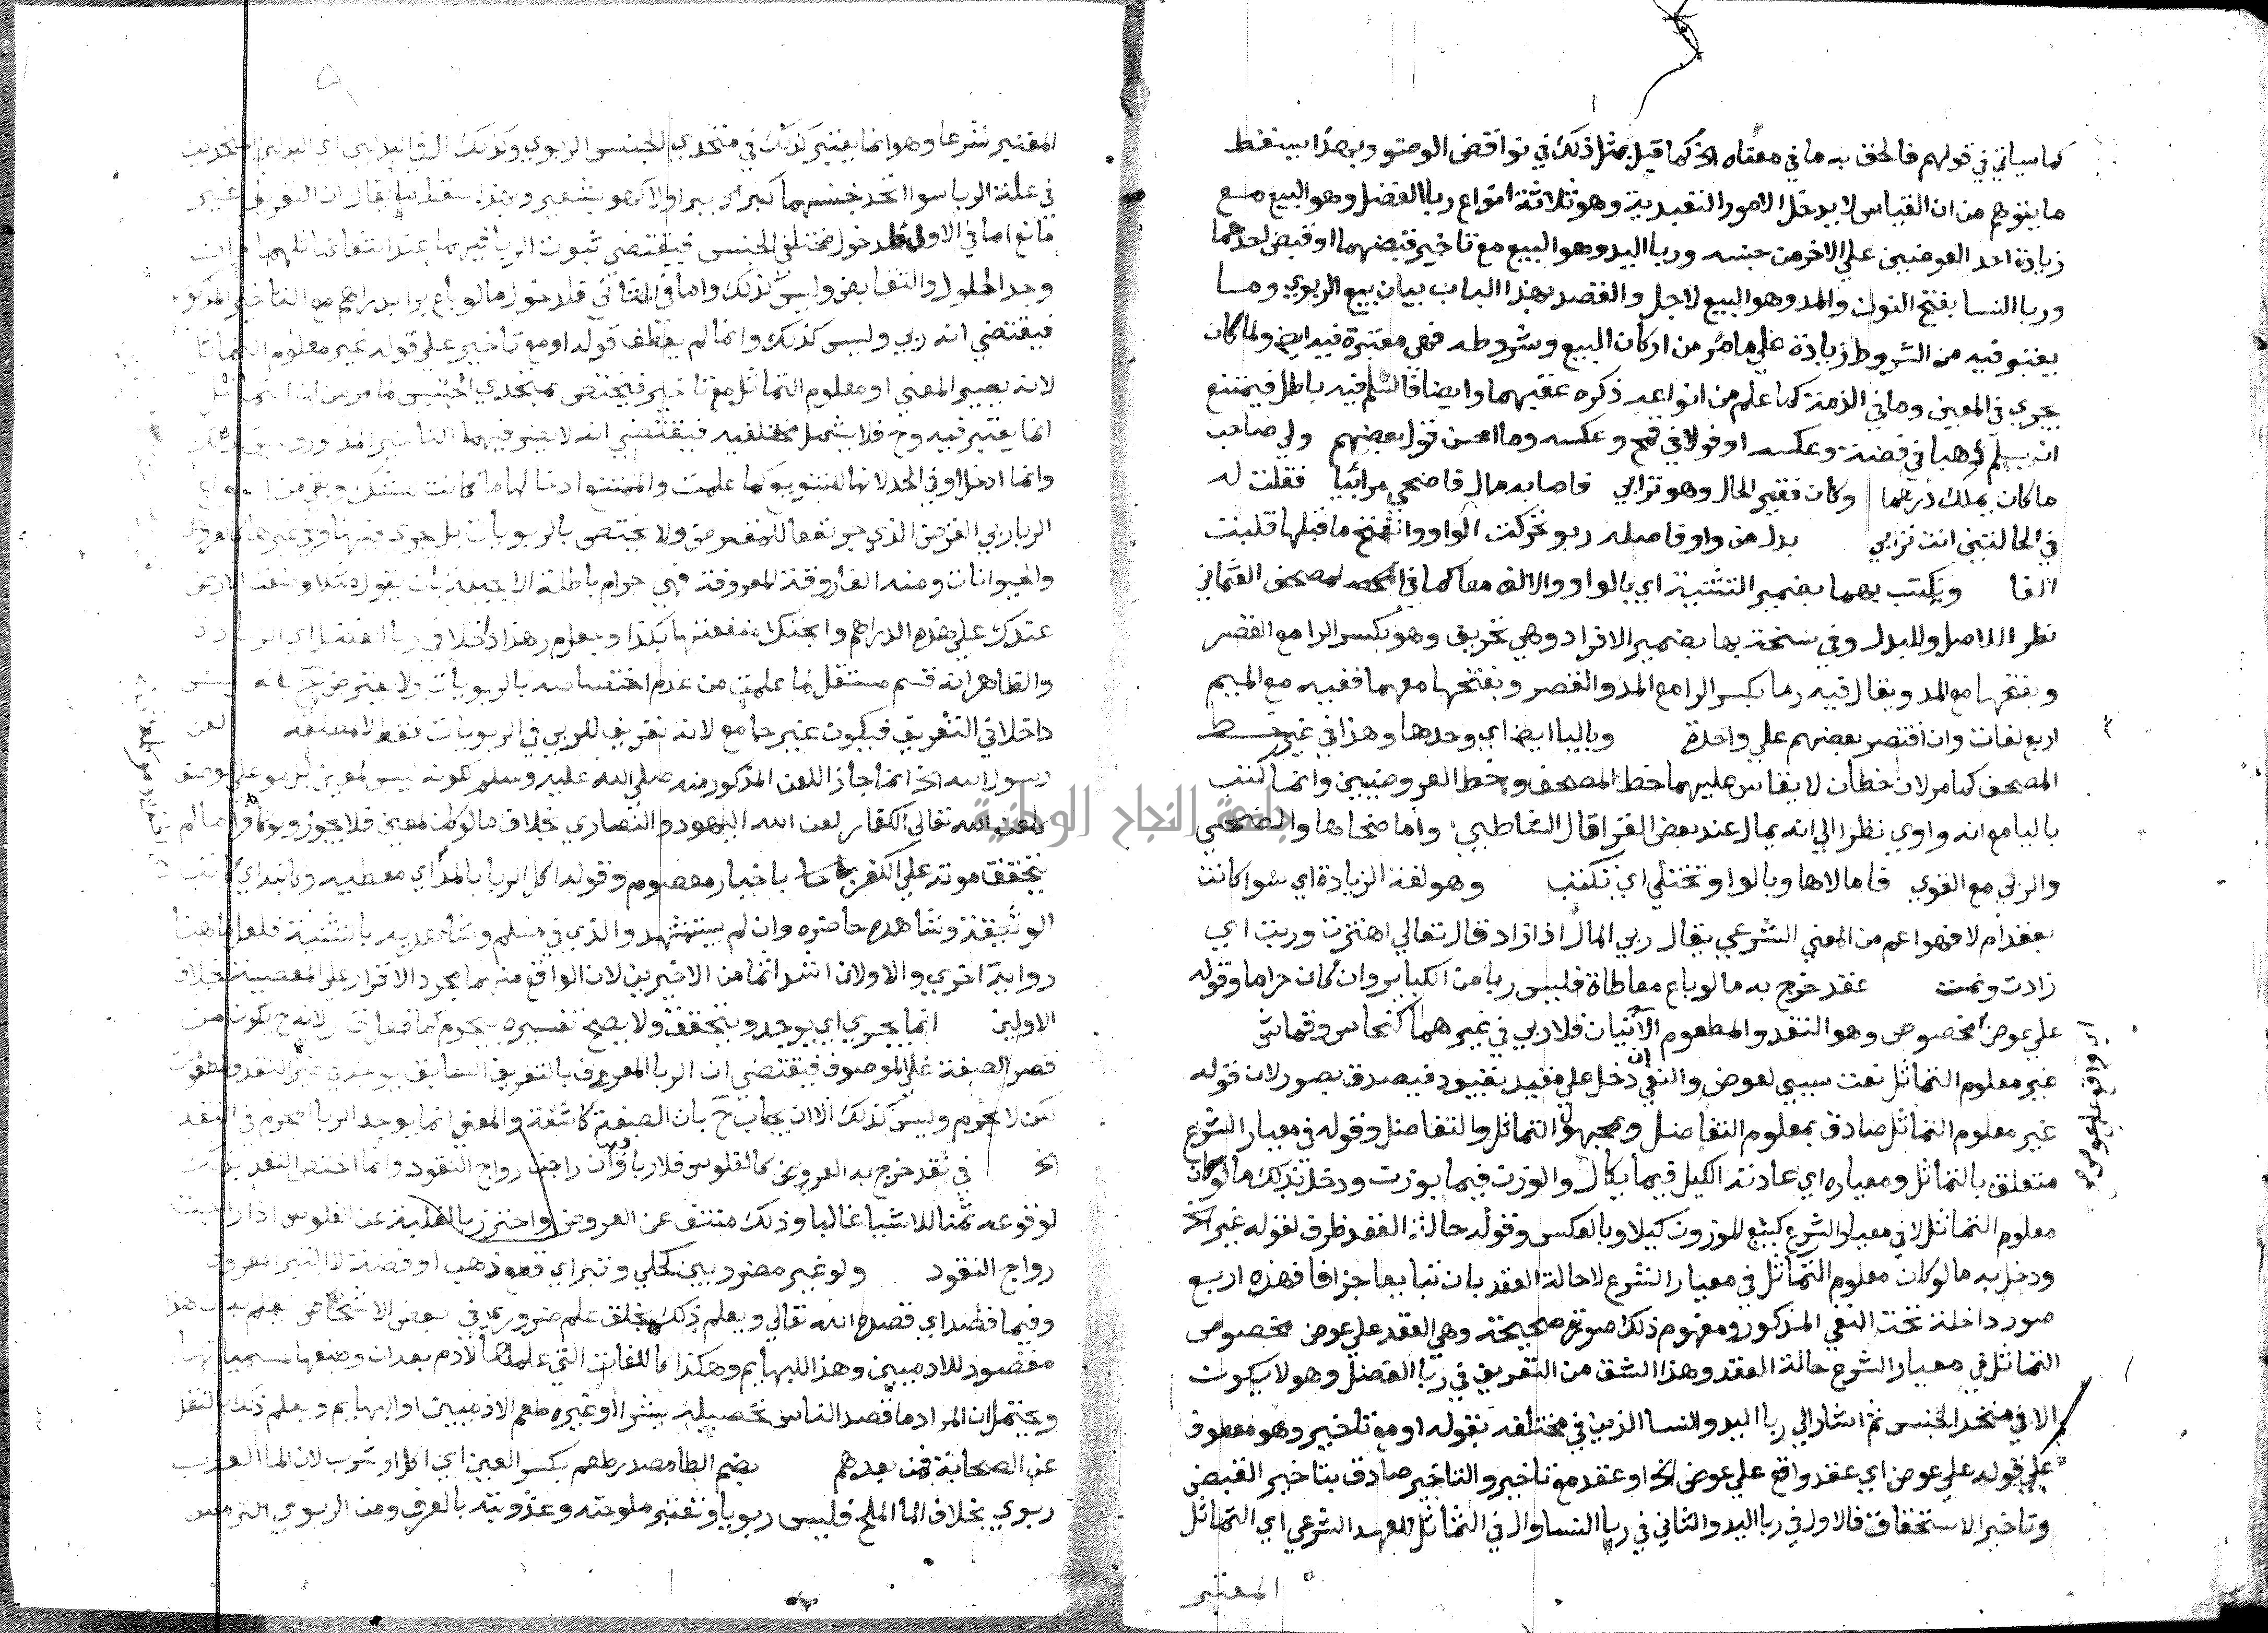 كما سياتي في قولهم فالحق به ما في معناه الخ كما قيل بمثل ذلك في نواقض الوضوء وبهذا يسقط
ما يتوهم من ان القياس لا يدخل الامور التعبدية وهو ثلاثة انواع ربا الفضل وهو البيع مع
زيادة احد العوضين علي الاخر من جنسه وربا اليد وهو البيع مع تاخير قبضهما او قبض احدهما
وربا النسا بفتح النون والمد وهو البيع لاجل والقصد بهذا الباب بيان بيع الربوي وما
يعتبر فيه من الشروط زيادة علي ما مر من اركان البيع وشروطه فهي معتبرة فيه ايض ولما كان
يجري في المعين وما في الذمة كما علم من انواعه ذكره عقبهما وايضا فالسلم فيه باطل فيمتنع
ان يسلم ذهبا في فضة وعكسه او فولا في قمح وعكسه وما احسن قول بعضهم ولي صاحب
ما كان يملك درهما وكان فقير الحال وهو ترابي فاصابه مال فاضحي مرابيا فقلت له
في الحالتين انت ترابي بدل من واو فاصله ربو تحركت الواو وانفتح ما قبلها قلبت
الفا ويكتب بهما بضمير التثنية اي بالواو والالف معا كما في المصحف العثماني
نظرا للاصل وللبدل وفي نسخة بها بضمير الافراد وهي تحريف وهو بكسر الرا مع القصر
وبفتحها مع المد ويقال فيه رما بكسر الرا مع المد والقصر وبفتحها معهما ففيه مع الميم
اربع لغات وان اقتصر بعضهم علي واحدة وباليا ايض اي وحدها وهذا في غير خط
المصحف كما مر لان خطان لا يقاس عليهما خط المصحف وخط العروضيين وانما كتب
باليا مع انه واوي نظرا الي انه يمال عند بعض القرا قال الشاطبي واما ضحاها والضحي
والربي مع القوي فامالاها وبالواو تختلي اي تكتب وهو لغة الزيادة اي سوا كانت
بعقد ام لا فهو اعم من المعني الشرعي يقال ربي المال اذا زاد قال تعالي اهتزت وربت اي
زادت ونمت عقد خرج به ما لو باع معاطاة فليس ربا من الكباير وان كان حراما وقوله
علي عوض مخصوص وهو النقد والمطعوم الاتيان فلا ربي في غيرهما كنحاس وقماش
غير معلوم التماثل نعت سببي لعوض والنفي ان دخل علي مقيد بقيود فيصدق بصور لان قوله
غير معلوم التماثل صادق بمعلوم التفاضل وبمجهول التماثل والتفاضل وقوله في معيار الشرع
متعلق بالتماثل ومعياره اي عادته الكيل فيما يكال والوزن فيما يوزن ودخل بذلك ما لو كان
معلوم التماثل لا في معيار الشرع كبيع الموزون كيلا وبالعكس وقوله حالة العقد ظرف لقوله غير الخ
ودخل به ما لو كان معلوم التماثل في معيار الشرع لا حالة العقد بان تبايعا جزافا فهذه اربع
صور داخلة تحت النفي المذكور ومفهوم ذلك صورة صحيحة وهي العقد علي عوض مخصوص
التماثل في معيار الشرع حالة العقد وهذا الشق من التعريف في ربا الفضل وهو لا يكون
الا في متحد الجنس ثم اشار الي ربا اليد والنسا الذين في مختلفه بقوله او مع تاخير وهو معطوف
علي قوله علي عوض اي عقد واقع علي عوض الخ او عقد مع تاخير والتاخير صادق بتاخير القبض
وتاخير الاستحقاق فالاول في ربا اليد والثاني في ربا النسا وال في التماثل للعهد الشرعي اي التماثل
المعتبر
المعتبر شرعا وهو انما يعتبر كذلك في متحدي الجنس الربوي وكذلك ال في البدلين اي البدلين المتحدين
في علة الربا سوا اتحد جنسهما كبر ببر اولا كهو بشعير وبهذا سقط ما يقال ان التعريف غير
مانع اما في الاول فلدخول مختلفي الجنس فيقتضي ثبوت الربا فيهما عند انتفا تماثلهما وان
وجد الحلول والتقابض وليس كذلك واما في الثاني فلدخول ما لو باع برا بدراهم مع التاخير المذكور
فيقتضي انه ربي وليس كذلك وانما لم يعطف قوله او مع تاخير علي قوله غير معلوم التماثل
لانه يصير المعني او معلوم التماثل مع تاخير فيختص بمتحدي الجنس لما مر من ان التماثل
انما يعتبر فيه وح فلا يشمل مختلفيه فيقتضي انه لا يضر فيهما التاخير المذكور وليس كذلك
وانما ادخل او في الحد لانها للتنويع كما علمت والممتنع ادخالها ما كانت للشك وبقي من انواع
الربا ربي القرض الذي جر نفعا للمقرض ولا يختص بالربويات بل يجري فيها وفي غيرها كالعروض
والحيوانات ومنه الفاروقة المعروفة فهي حرام باطلة
عندك علي هذه الدراهم وابحتك منفعتها بكذا وجعلهم هذا داخلا في ربا الفضل اي الزيادة
والظاهر انه قسم مستقل لما علمت من عدم اختصاصه بالربويات ولا يعترض ح بانه ليس
داخلا في التعريف فيكون غير جامع لانه تعريف للربي في الربويات فقط لا مطلقه لعن
رسول الله الخ انما جاز اللعن المذكور منه صلي الله عليه وسلم لكونه ليس لمعين بل هو علي وصف
كلعن الله تعالي الكفار لعن الله اليهود والنصاري بخلاف ما لو كان لمعين فلا يجوز ولو كافرا ما لم
يتحقق موته علي الكفر باخبار معصوم وقوله اكل الربا بالمد اي معطيه وكاتبه اي كاتب
الوثيقة وشاهده حاضره وان لم يستشهد والذي في مسلم وشاهديه بالتثنية فلعل ما هنا
رواية اخري والاولان اشد اثما من الاخيرين لان الواقع منهما مجرد الاقرار علي المعصية بخلاف
الاولين انما يجري اي يوجد ويتحقق ولا يصح تفسيره بيحرم كما فعل لانه ح يكون من
قصر الصفة علي الموصوف فيقتضي ان الربا المعروف بالتعريف السابق يوجد في غير النقد والمطعومات
لكن لا يحرم وليس كذلك الا ان يجاب ح بان الصفة كاشفة والمعني انما يوجد الربا المحرم في النقد
الخ في نقد خرج به العروض كالفلوس فلا ربا فيها وان راجت رواج النقود وانما اختص النقد بذلك
لوقوعه ثمنا للاشيا غالبا وذلك منتف عن العروض واحترز بالغلبة عن الفلوس اذا راجت
رواج النقود ولو غير مضروبين كحلي وتبر اي قطع ذهب او فضة لا التبر المعروف
وفيما قصد اي قصده الله تعالي ويعلم ذلك بخلق علم ضروري في بعض الاشخاص يعلم به ان هذا
مقصود للادميين وهذا للبهايم وهكذا كاللغات التي علمها لادم بعد ان وضعها لمسمياتها
ويحتمل ان المراد ما قصد الناس تحصيله بشرا او غيره طعم الادميين او البهايم ويعلم ذلك بالنقل
عن الصحابة فمن بعدهم بضم الطا مصدر طعم بكسر العين اي اكل او شرب لان الما العذب
ربوي بخلاف الما الملح فليس ربويا وتعتبر ملوحته وعذوبته بالعرف ومن الربوي الترمس
جامعة النجاح الوطنية